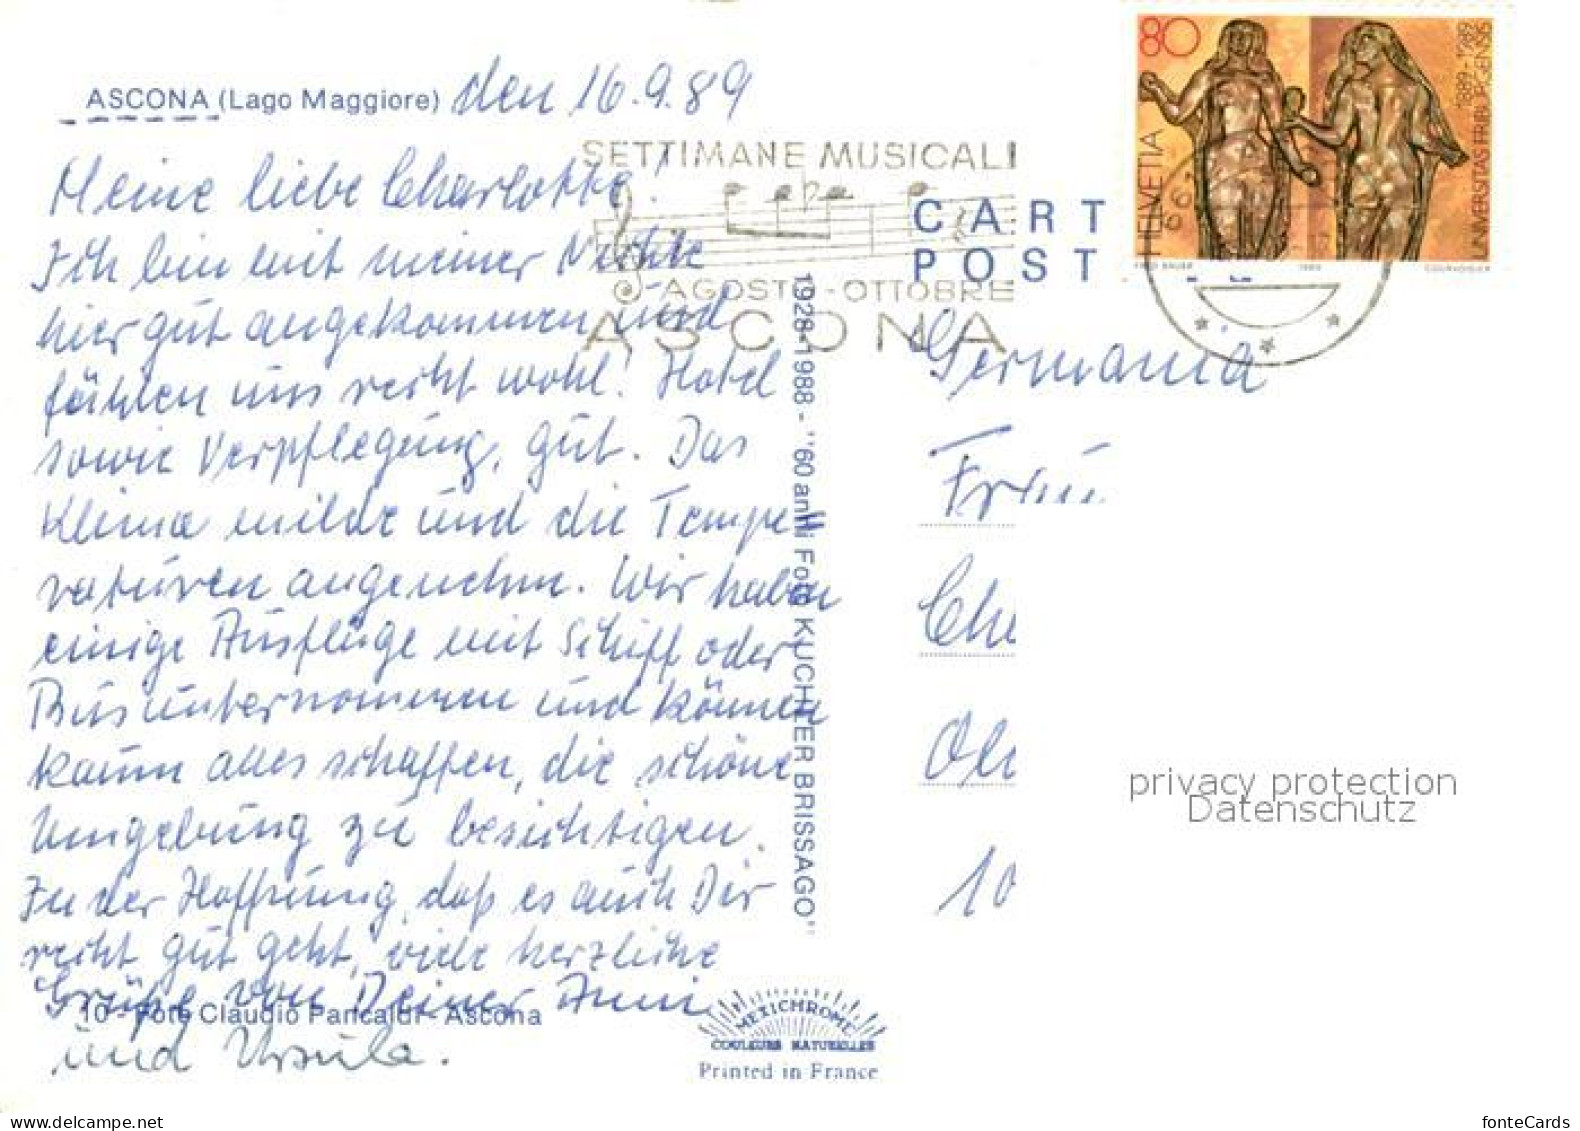 ASCONA (Lago Maggiore) den 16.9.89
Meine liebe Charlotte!
Ich bin mit meiner Nichte
hier gut angekommen und
fühlen uns recht wohl! Hotel
sowie Verpflegung, gut. Das
Klima milde und die Tempe
raturen angenehm. Wir haben
einige Ausflüge mit Schiff oder
Bus unternommen und können
kaum alles schaffen, die schöne
Umgebung zu besichtigen.
In der Hoffnung, daß es auch Dir
recht gut geht, viele herzliche
Grüße von Deiner Anni
und Ursula.
10 - Foto Claudio Pancaldi - Ascona
SETTIMANE MUSICALI
AGOSTO - OTTOBRE
ASCONA
1928-1988 - "60 anni Foto KUCHLER BRISSAGO"
MEXICHROME
COULEURS NATURELLES
Printed in France
CART
POST
80
HELVETIA
1889-1989
UNIVERSITAS FRIBURGENSIS
1989
COURVOISIER
Germania
Frau
Che
10
privacy protection
Datenschutz
www.delcampe.net
fonteCards